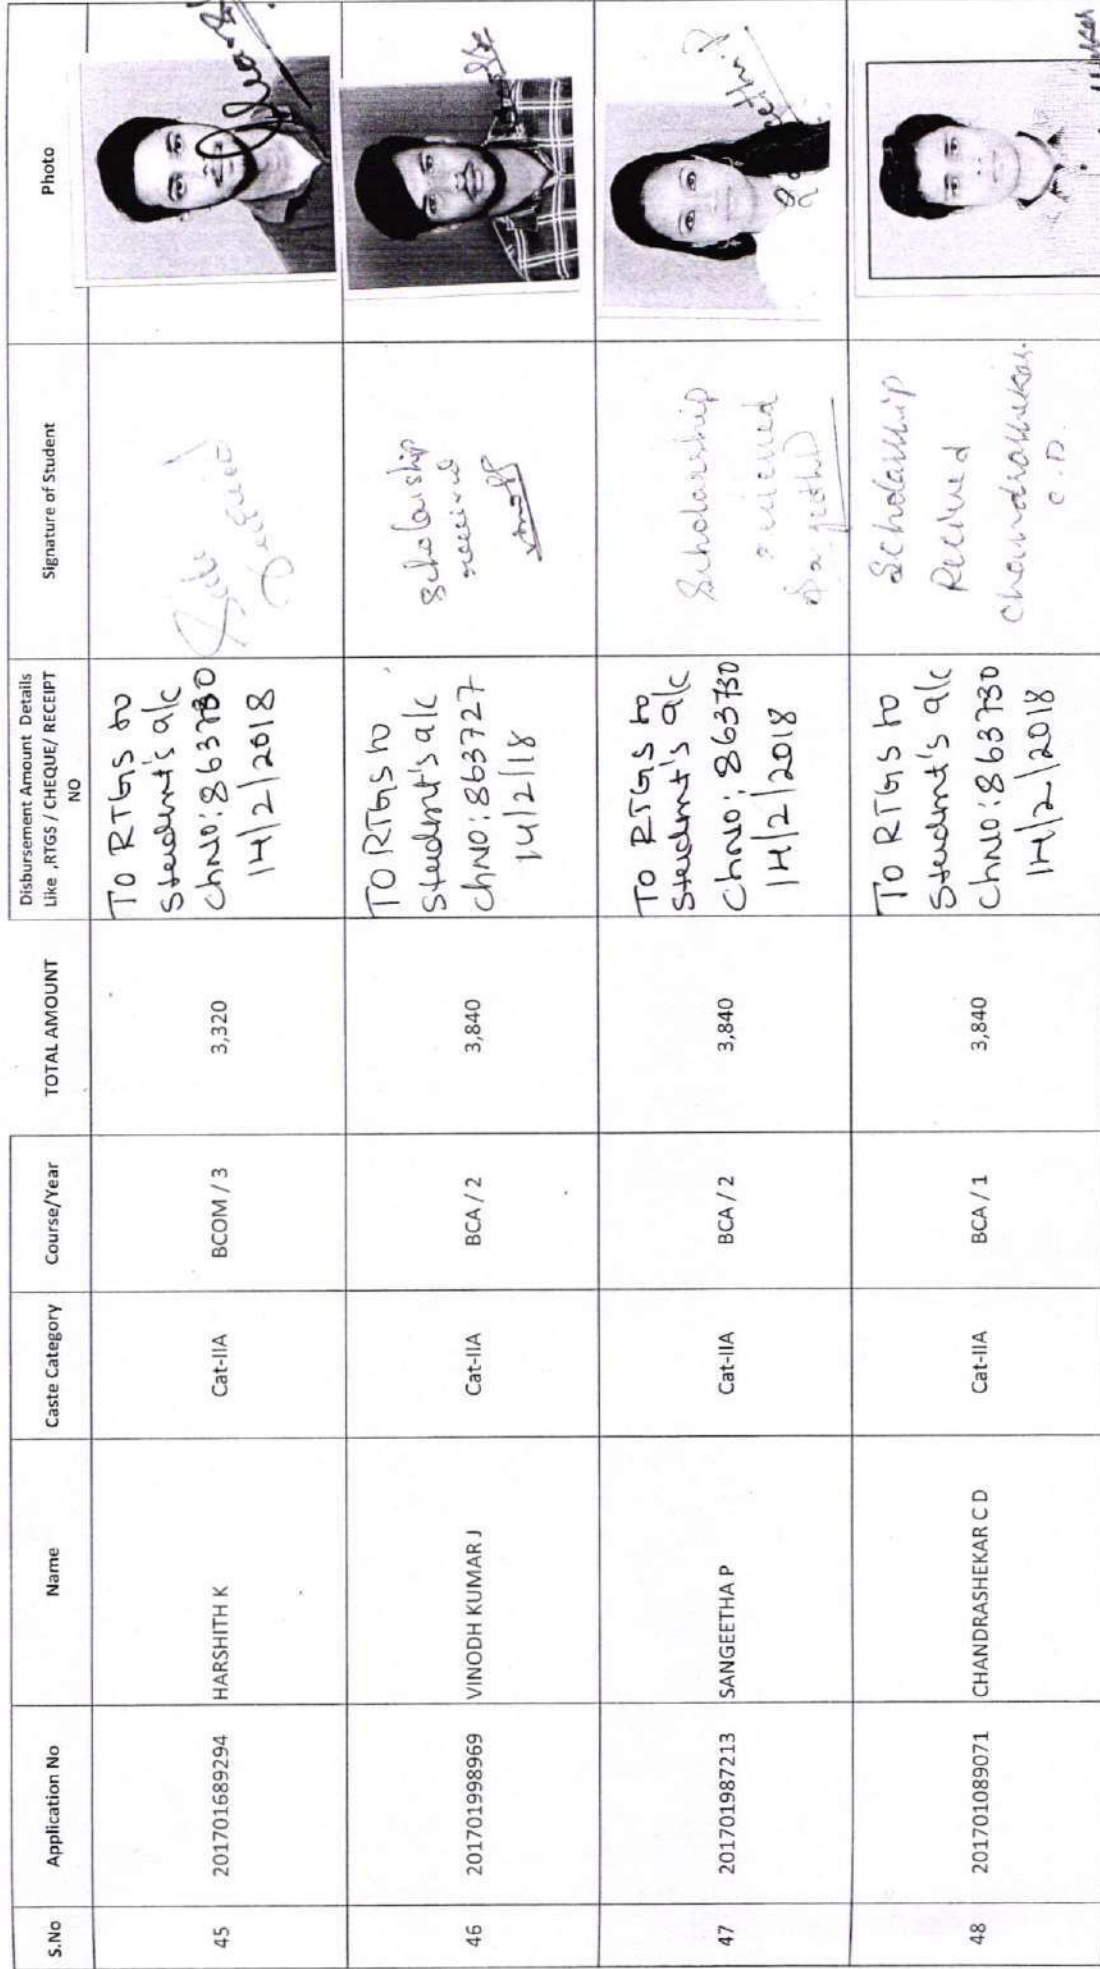 S.No	Application No	Name	Caste Category	Course/Year	TOTAL AMOUNT	Disbursement Amount Details	Signature of Student	Photo
Like ,RTGS / CHEQUE/ RECEIPT
NO
45	201701689294	HARSHITH K	Cat-IIA	BCOM / 3	3,320
TO RTGS to
Student's a/c
ChNO: 863730
14/2/2018
46	201701998969	VINODH KUMAR J	Cat-IIA	BCA / 2	3,840
TO RTGS to
Student's a/c
ChNO: 863727
14/2/18
Scholarship
received
47	201701987213	SANGEETHA P	Cat-IIA	BCA / 2	3,840
TO RTGS to
Student's a/c
ChNO: 863730
14/2/2018
Scholarship
received
Sangeetha
48	201701089071	CHANDRASHEKAR C D	Cat-IIA	BCA / 1	3,840
TO RTGS to
Student's a/c
ChNO: 863730
14/2/2018
Scholarship
Recived
Chandrashekar.
C.D.